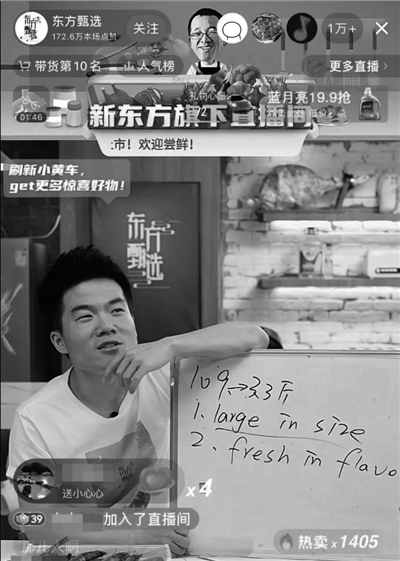 东方甄选
172.6万本场点赞
关注
1万+
带货第10名
人气榜
更多直播
01:46
蓝月亮19.9抢
新东方旗下直播间
市！欢迎尝鲜！
刷新小黄车，
get更多惊喜好物！
东方
甄选
1. large in size
2. fresh in flavo
送小心心
x4
39
加入了直播间
热卖 x 1405